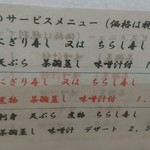 のサービスメニュー(価格は税
にぎり寿し 又は ちらし寿し
天ぷら 茶碗蒸し 味噌汁付
にぎり寿し 又は ちらし寿し
煮物 茶碗蒸し 味噌汁付 1.
刺身 天ぷら 煮物
茶碗蒸し 味噌汁 デザート 2.5